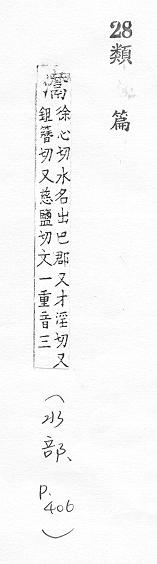 28 類篇
灊
徐心切水名出巴郡又才淫切又
鉏簪切又慈鹽切文一重音三
（水部、P.406）